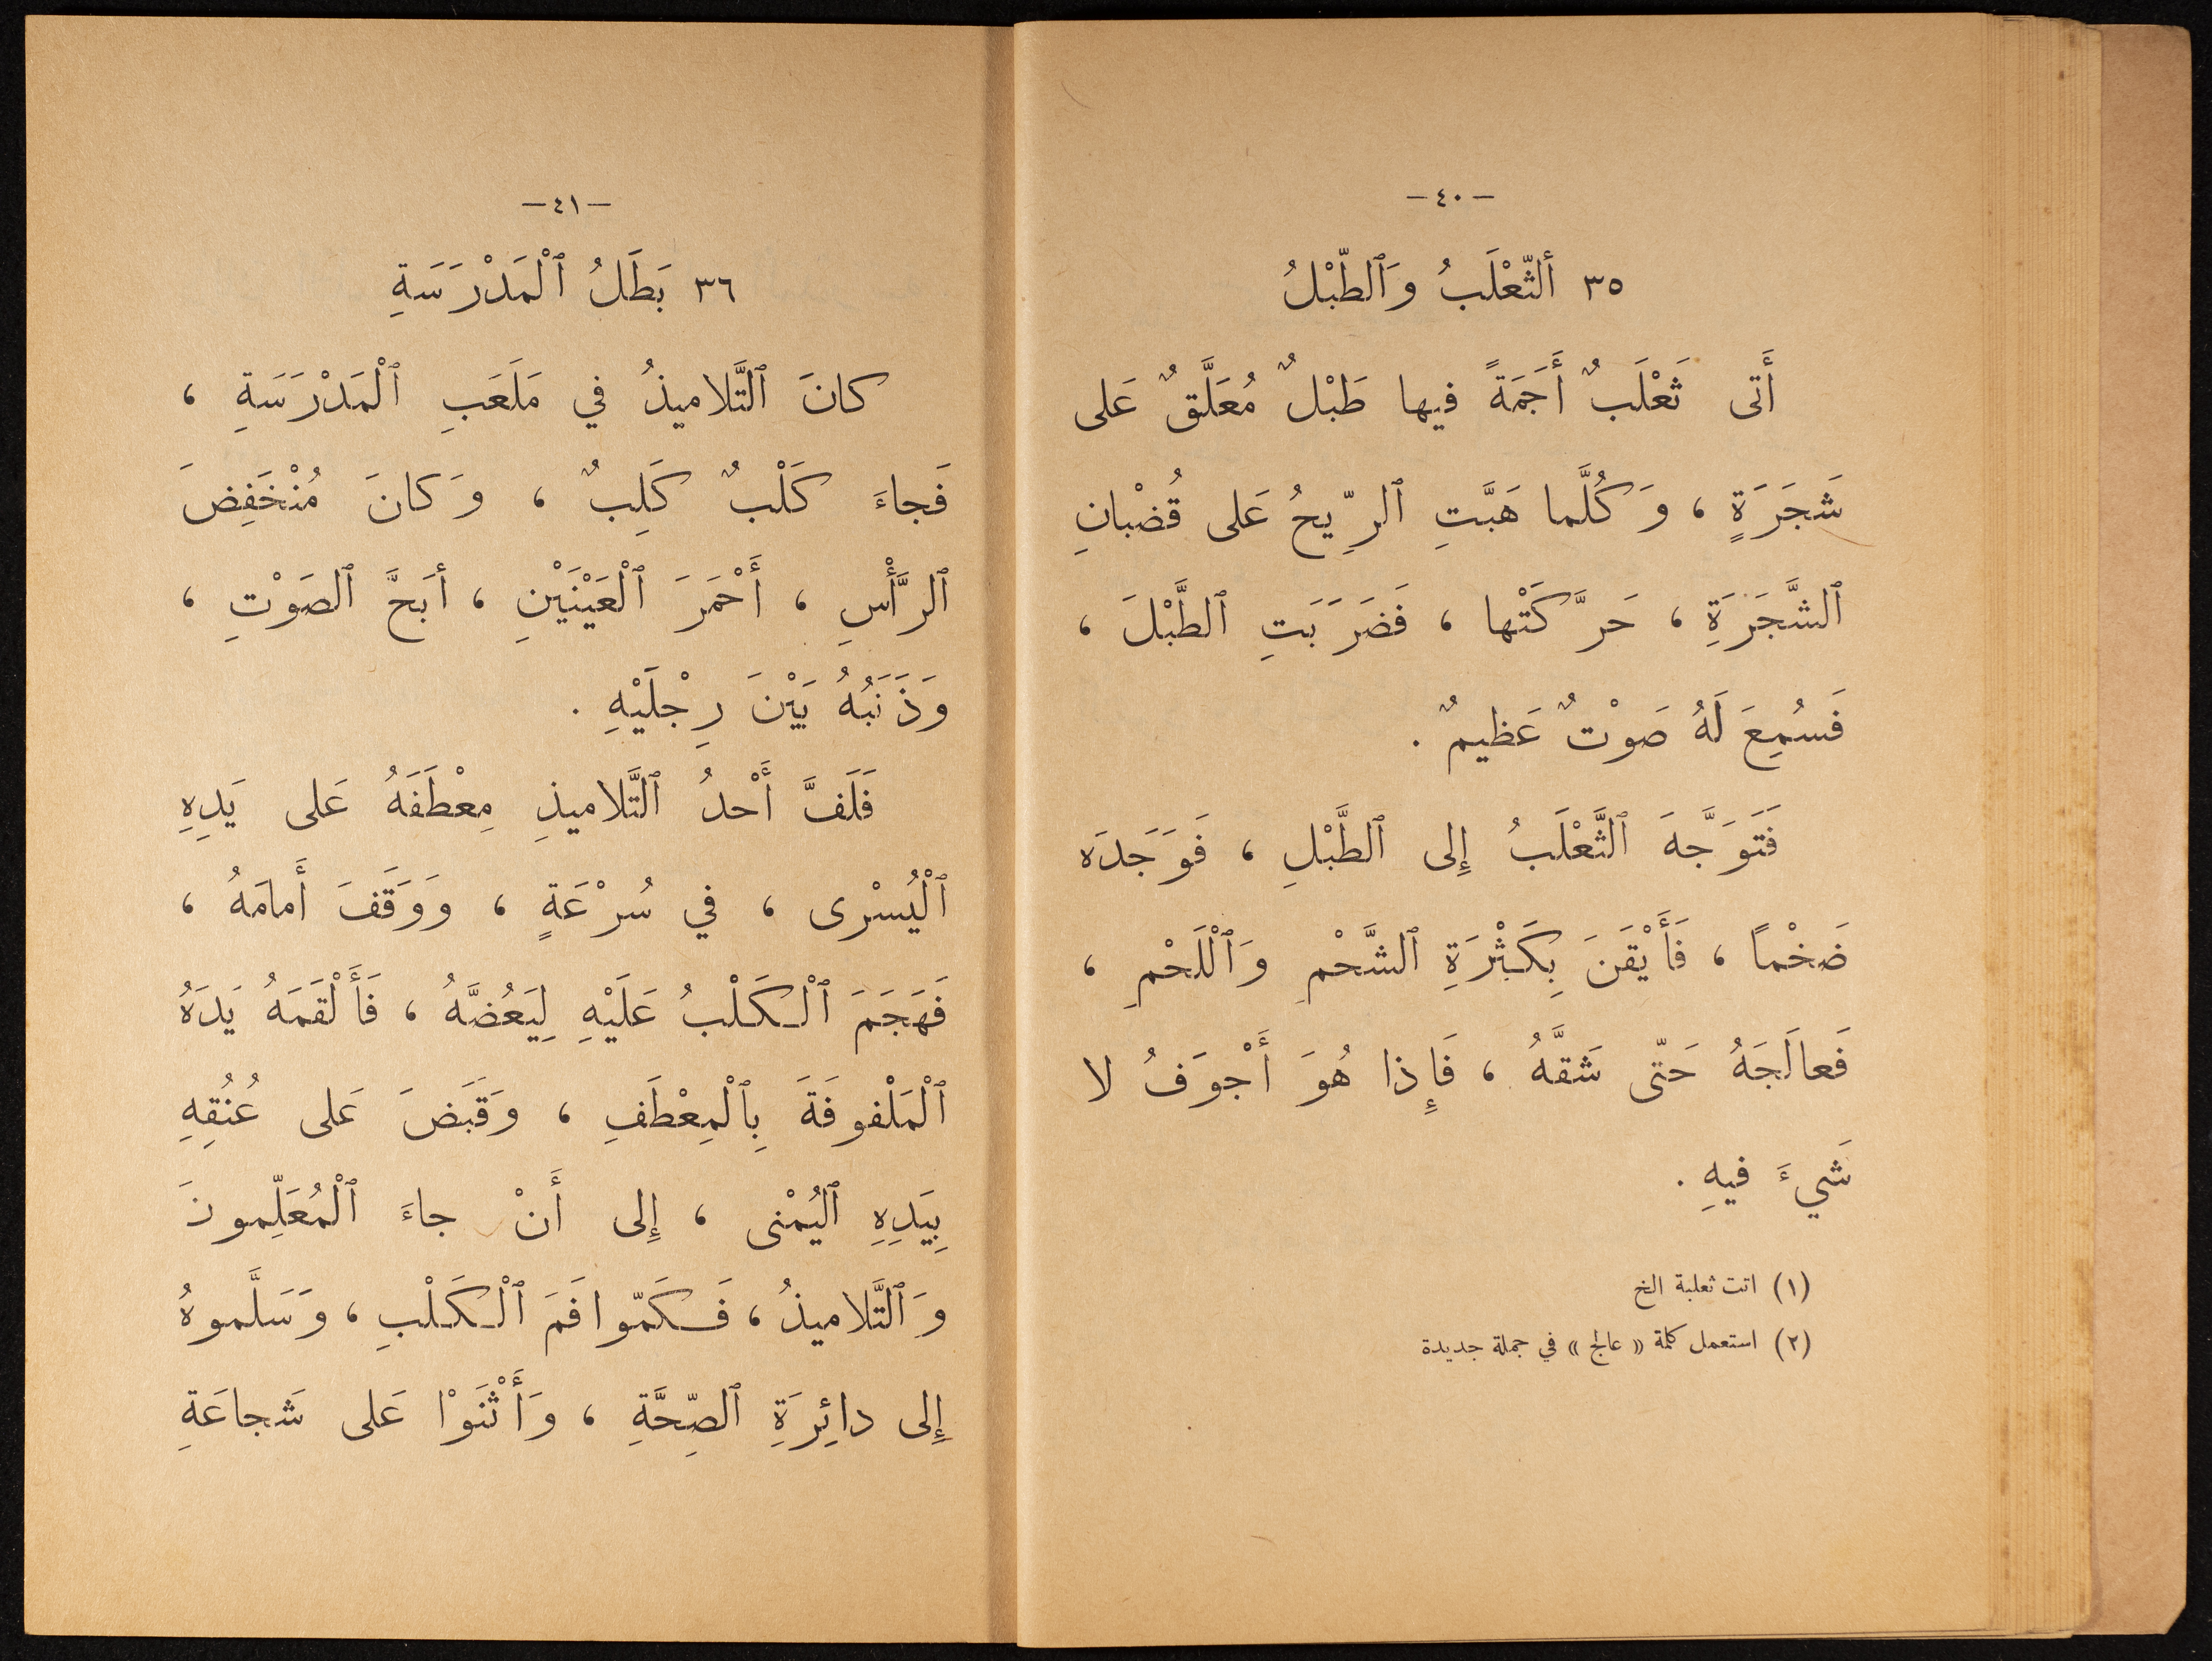 — ٤٠ —
٣٥ أَلثَّعْلَبُ وَٱلطَّبْلُ
أَتى ثَعْلَبٌ أَجَمَةً فيها طَبْلٌ مُعَلَّقٌ عَلى
شَجَرَةٍ ، وَكُلَّما هَبَّتِ ٱلرِّيحُ عَلى قُضْبانِ
ٱلشَّجَرَةِ ، حَرَّكَتْها ، فَضَرَبَتِ ٱلطَّبْلَ ،
فَسُمِعَ لَهُ صَوْتٌ عَظيمٌ .
فَتَوَجَّهَ ٱلثَّعْلَبُ إِلى ٱلطَّبْلِ ، فَوَجَدَه
ضَخْماً ، فَأَيْقَنَ بِكَثْرَةِ ٱلشَّحْمِ وَٱلْلَحْمِ ،
فَعالَجَهُ حَتّى شَقَّهُ ، فَإِذا هُوَ أَجْوَفُ لا
شَيءَ فيهِ .
(١) اتت ثعلبة الخ
(٢) استعمل كلمة « عالج » في جملة جديدة
— ٤١ —
٣٦ بَطَلُ ٱلْمَدْرَسَةِ
كانَ ٱلتَّلاميذُ في مَلَعَبِ ٱلْمَدْرَسَةِ ،
فَجاءَ كَلْبٌ كَلِبٌ ، وَكانَ مُنْخَفِضَ
ٱلرَّأْسِ ، أَحْمَرَ ٱلْعَيْنَيْنِ ، أبَحَّ ٱلصَوْتِ ،
وَذَنَبُهُ بَيْنَ رِجْلَيْهِ .
فَلَفَّ أَحْدُ ٱلتَّلاميذِ مِعْطَفَهُ عَلى يَدِهِ
ٱلْيُسْرى ، في سُرْعَةٍ ، وَوَقَفَ أَمامَهُ ،
فَهَجَمَ ٱلْكَلْبُ عَلَيْهِ لِيَعُضَّهُ ، فَأَلْقَمَهُ يَدَهُ
ٱلْمَلْفوفَةَ بِٱلْمِعْطَفِ ، وَقَبَضَ عَلى عُنُقِهِ
بِيَدِهِ ٱليُمْنى ، إِلى أَنْ جاءَ ٱلْمُعَلِّمونَ
وَٱلتَّلاميذُ ، فَكَمّوا فَمَ ٱلْكَلْبِ ، وَسَلَّموهُ
إِلى دائِرَةِ ٱلصِّحَّةِ ، وَأَثْنَوْا عَلى شَجاعَةِ